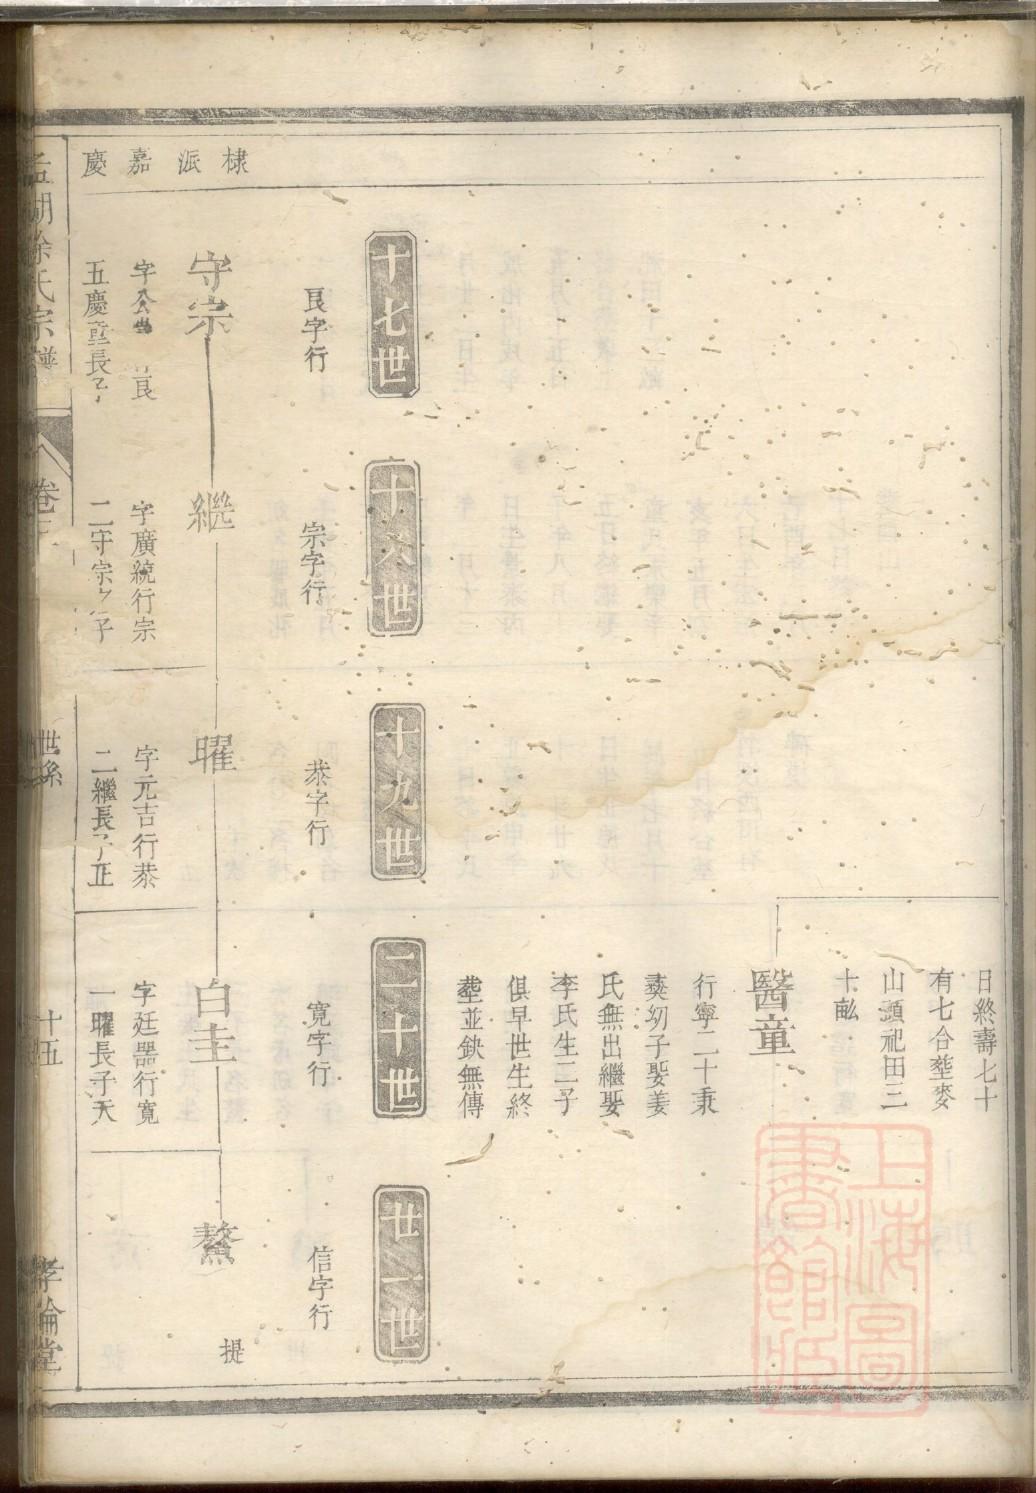 棣派嘉慶
日終壽七十
有七合塟麥
山頭祀田三
十畝
醫童
行寧二十秉
奭幼子娶姜
氏無出繼娶
李氏生二子
俱早世生終
塟並缺無傳
十七世
十八世
十九世
二十世
廿一世
艮字行
宗字行
恭字行
寬字行
信字行
守宗
繼
曜
白圭
鰲
提
艮
五慶童長
字廣統行宗
二守宗之子
字元吉行恭
二繼長子正
字廷器行寬
一曜長子天
孟湖徐氏宗譜
卷二
世系
十五
孝倫堂
上海圖書館